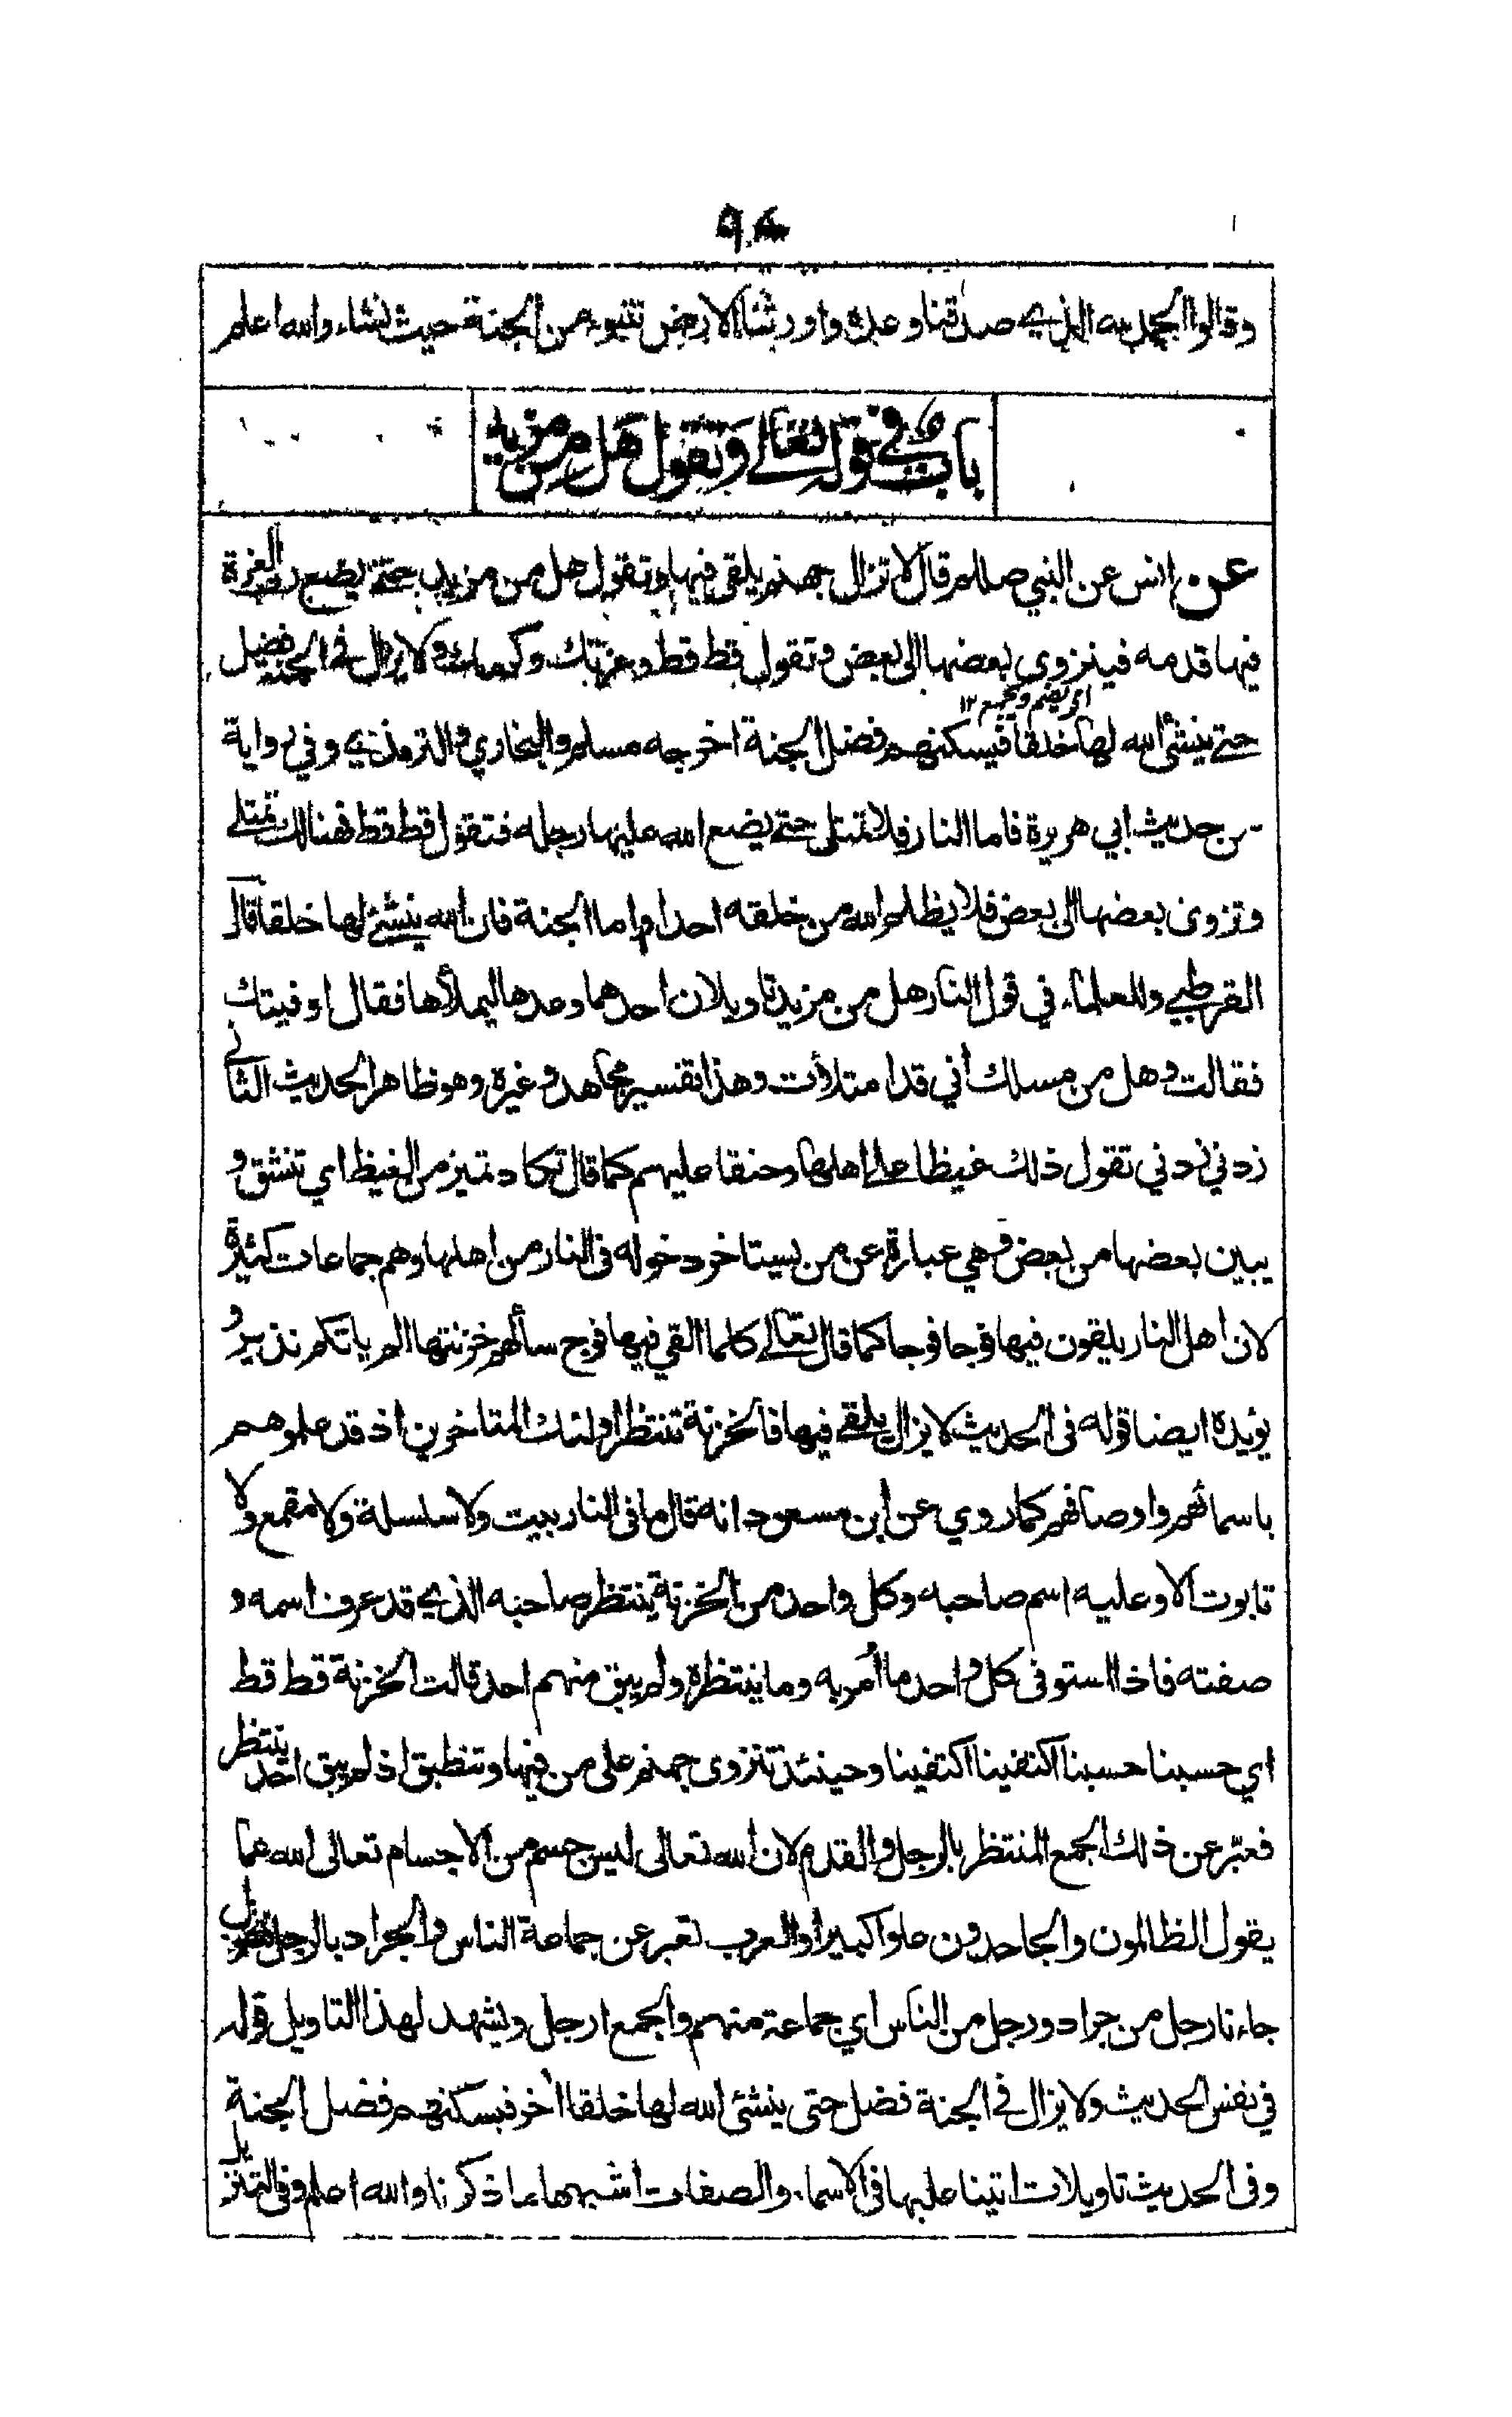 وقالوا الحمد لله الذي صدقنا وعده واورثنا الارض نتبوء من الجنة حيث نشاء والله اعلم
باب في قوله تعالى وتقول هل من مزيد
عن انس عن النبي صللم قال لا تزال جهنم يلقى فيها وتقول هل من مزيد حتى يضع رب العزة
فيها قدمه فينزوي بعضها الى بعض وتقول قط قط وعزتك وكرمك ولا يزال في الجنة فضل
اي يضم ويجمع ١٢
حتى ينشئ الله لها خلقا فيسكنهم فضل الجنة اخرجه مسلم والبخاري والترمذي وفي رواية
من حديث ابي هريرة فاما النار فلا تمتلى حتى يضع الله عليها رجله فتقول قط قط فهنالك تمتلي
وتزوى بعضها الى بعض فلا يظلم الله من خلقه احدا واما الجنة فان الله ينشئ لها خلقا قال
القرطبي وللعلماء في قول النار هل من مزيد تاويلان احدهما وعدها ليملأها فقال اوفيتك
فقالت وهل من مسلك أني قد امتلأت وهذا تفسير مجاهد وغيره وهو ظاهر الحديث الثاني
زدني زدني تقول ذلك غيظا على اهلها وحنقا عليهم كما قال تكاد تميز من الغيظ اي تنشق و
يبين بعضها من بعض وهي عبارة عن من يستاخر دخوله فى النار من اهلها وهم جماعات كثيرة
لان اهل النار يلقون فيها فوجا فوجا كما قال تعالى كلما القي فيها فوج سألهم خزنتها الم ياتكم نذير و
يؤيده ايضا قوله فى الحديث لا يزال يلقى فيها فالخزنة تنتظر اولئك المتاخرين اذ قد علموهم
باسمائهم واوصافهم كما روي عن ابن مسعود انه قال ما فى النار بيت ولا سلسلة ولا مقمع ولا
تابوت الا وعليه اسم صاحبه وكل واحد من الخزنة ينتظر صاحبه الذي قد عرف اسمه و
صفته فاذا استوفى كل واحد ما أمر به وما ينتظره ولم يبق منهم احد قالت الخزنة قط قط
اي حسبنا حسبنا اكتفينا اكتفينا وحينئذ تنزوى جهنم على من فيها وتنطبق اذ لم يبق احد ينتظر
فعبّر عن ذلك الجمع المنتظر بالرجل والقدم لان الله تعالى ليس جسم من الاجسام تعالى الله عما
يقول الظالمون والجاحدون علوا كبيرا والعرب تعبر عن جماعة الناس والجراد بالرجل
جاءنا رجل من جراد ورجل من الناس اي جماعة منهم والجمع ارجل ويشهد لهذا التاويل قوله
في نفس الحديث ولا يزال في الجنة فضل حتى ينشئ الله لها خلقا اخر فيسكنهم فضل الجنة
وفى الحديث تاويلات اتينا عليها فى الاسماء والصفات اشبهها ما ذكرنا والله اعلم وفى التنزيل